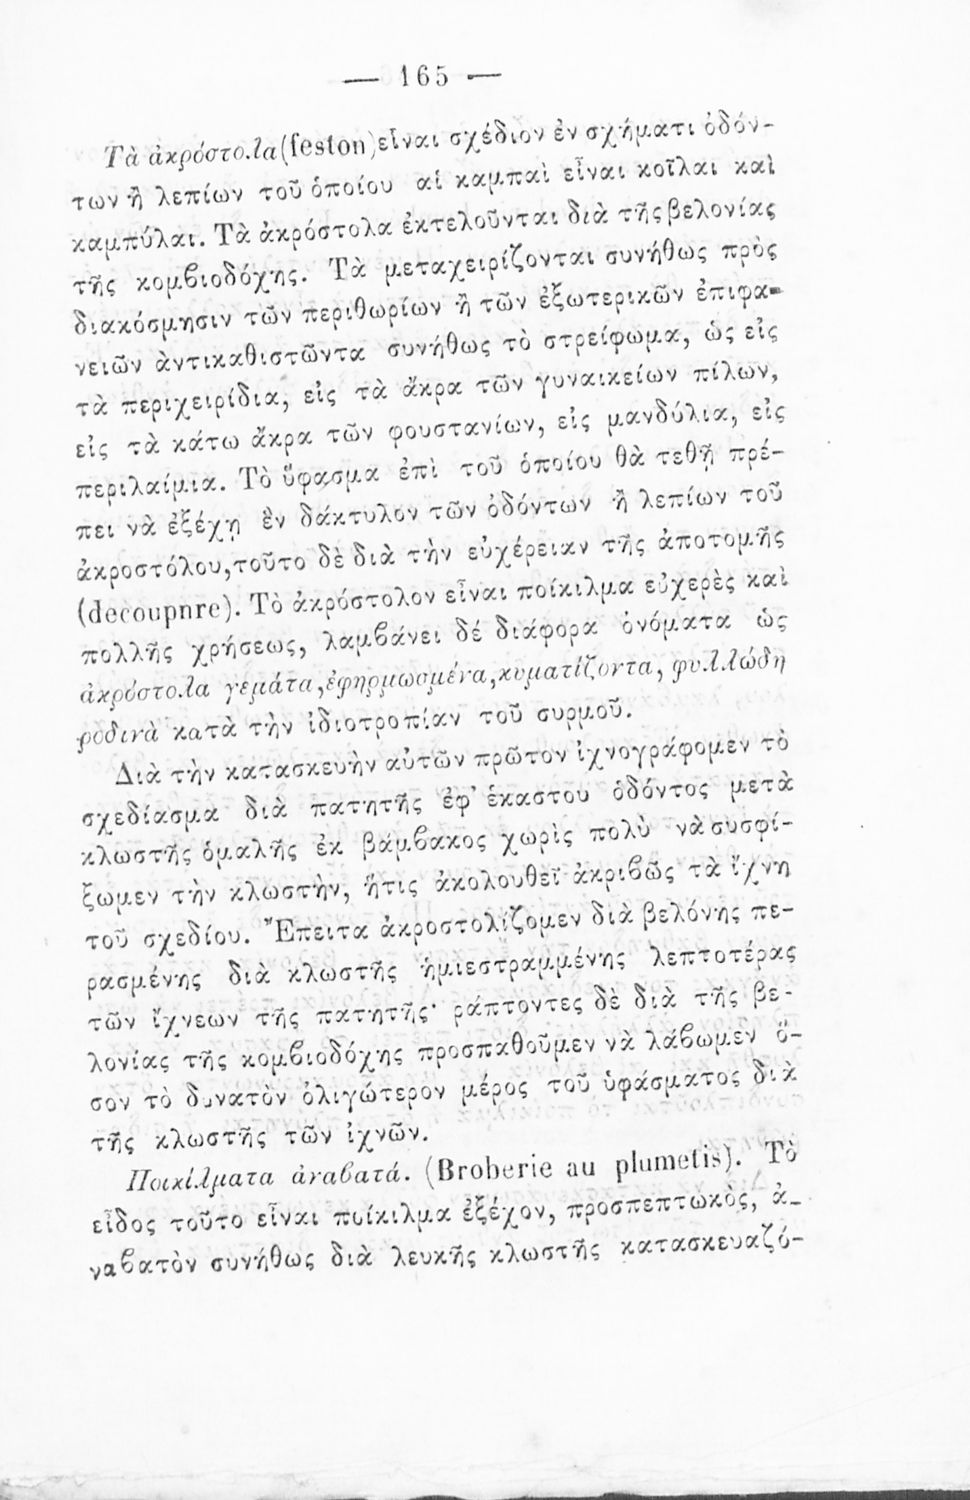 — 165 —
Τὰ ἀκρόστολα (feston) εἶναι σχέδιον ἐν σχήματι ὀδόν-
των ἢ λεπίων τοῦ ὁποίου αἱ καμπαὶ εἶναι κοῖλαι καὶ
καμπύλαι. Τὰ ἀκρόστολα ἐκτελοῦνται διὰ τῆς βελονίας
τῆς κομβιοδόχης. Τὰ μεταχειρίζονται συνήθως πρὸς
διακόσμησιν τῶν περιθωρίων ἢ τῶν ἐξωτερικῶν ἐπιφα-
νειῶν ἀντικαθιστῶντα συνήθως τὸ στρείφωμα, ὡς εἰς
τὰ περιχειρίδια, εἰς τὰ ἄκρα τῶν γυναικείων πίλων,
εἰς τὰ κάτω ἄκρα τῶν φουστανίων, εἰς μανδύλια, εἰς
περιλαίμια. Τὸ ὕφασμα ἐπὶ τοῦ ὁποίου θὰ τεθῇ πρέ-
πει νὰ ἐξέχῃ ἓν δάκτυλον τῶν ὀδόντων ἢ λεπίων τοῦ
ἀκροστόλου, τοῦτο δὲ διὰ τὴν εὐχέρειαν τῆς ἀποτομῆς
(decoupnre). Τὸ ἀκρόστολον εἶναι ποίκιλμα εὐχερὲς καὶ
πολλῆς χρήσεως, λαμβάνει δέ διάφορα ὀνόματα ὡς
ἀκρόστολα γεμάτα, ἐφηρμωσμένα, κυματίζοντα, φυλλώδη
ῥόδινὰ κατὰ τὴν ἰδιοτροπίαν τοῦ συρμοῦ.
Διὰ τὴν κατασκευὴν αὐτῶν πρῶτον ἰχνογράφομεν τὸ
σχεδίασμα διὰ πατητῆς ἐφ' ἑκαστου ὀδόντος μετὰ
κλωστῆς ὁμαλῆς ἐκ βάμβακος χωρὶς πολὺ νὰ συσφί-
ξωμεν τὴν κλωστὴν, ἥτις ἀκολουθεῖ ἀκριβῶς τὰ ἴχνη
τοῦ σχεδίου. Ἔπειτα ἀκροστολίζομεν διὰ βελόνης πε-
ρασμένης διὰ κλωστῆς ἡμιεστραμμένης λεπτοτέρας
τῶν ἴχνεων τῆς πατητῆς· ράπτοντες δὲ διὰ τῆς βε-
λονίας τῆς κομβιοδόχης προσπαθοῦμεν νὰ λάβωμεν ὅ-
σον τὸ δυνατὸν ὀλιγώτερον μέρος τοῦ ὑφάσματος διὰ
τῆς κλωστῆς τῶν ἰχνῶν.
Ποικίλματα ἀναβατά. (Broberie au plumetis). Τὸ
εἶδος τοῦτο εἶναι ποίκιλμα ἐξέχον, προσπεπτωκὸς, ἀ-
ναβατὸν συνήθως διὰ λευκῆς κλωστῆς κατασκευαζό-